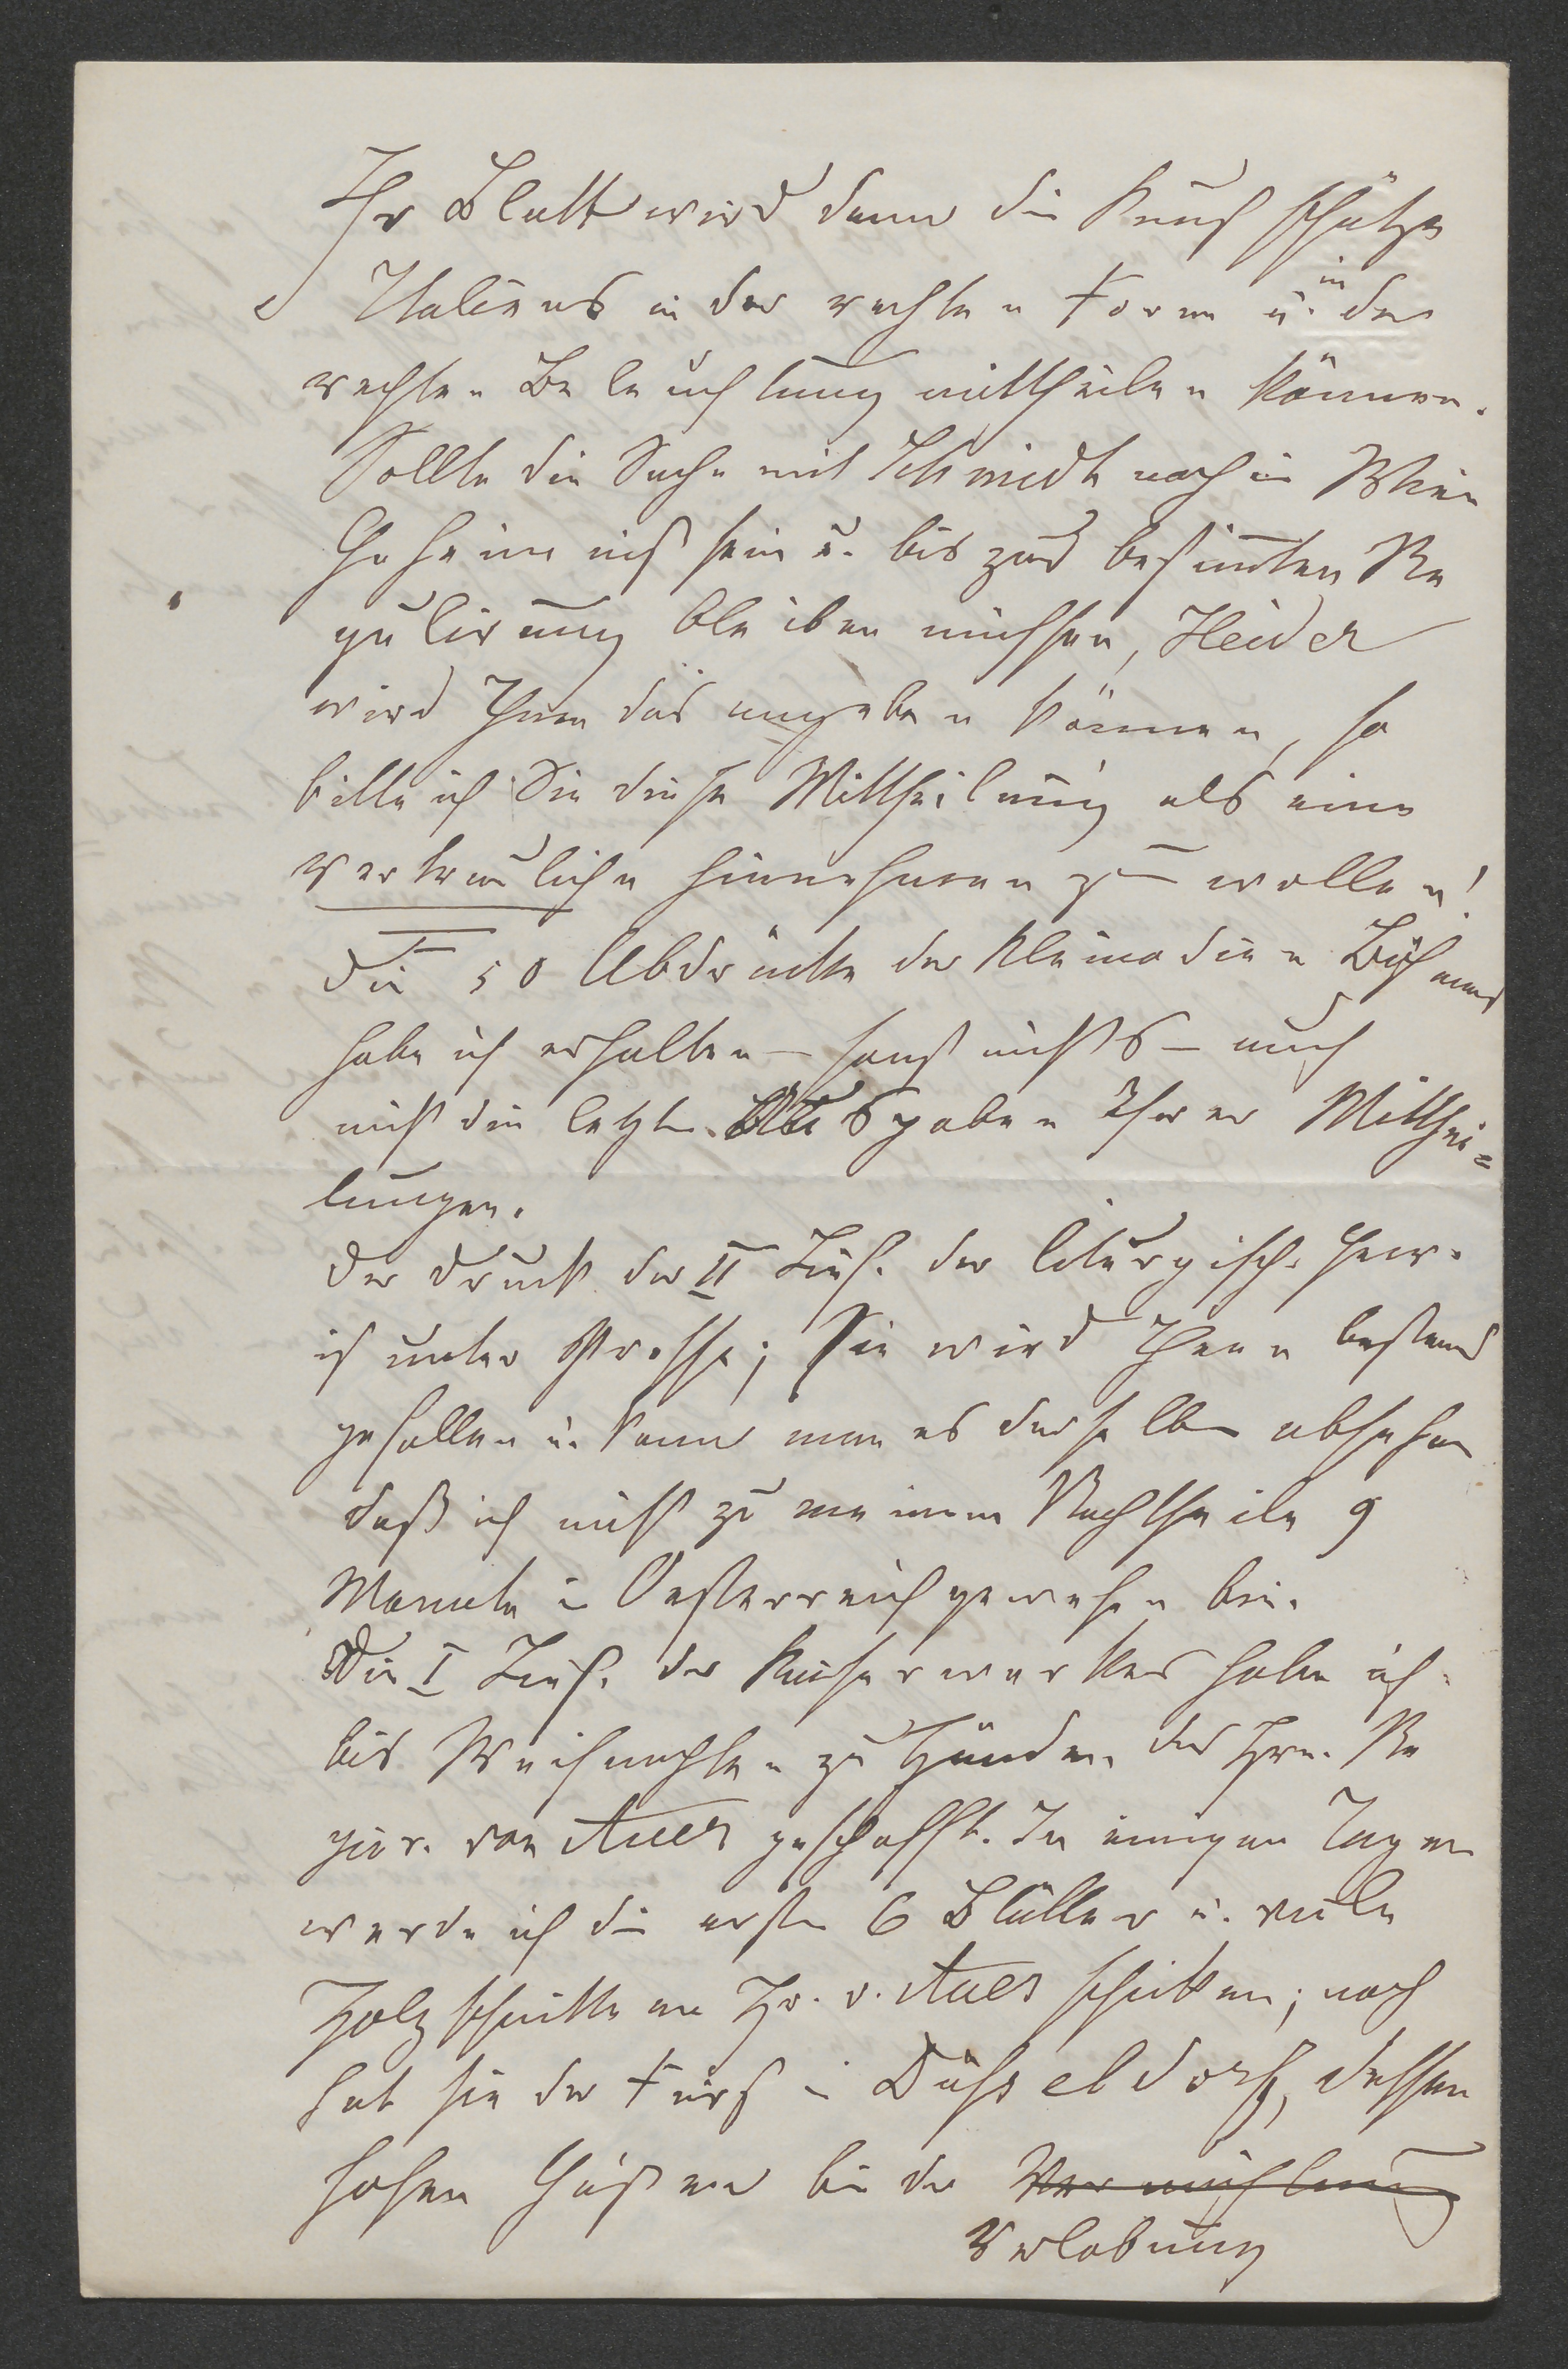 Ihr Blatt wird dann die Kunstschätze
Italiens in der rechten Form u. in der
rechten Beleuchtung mittheilen können.
Sollte die Sache mit Schmidt noch in Wien
Geheimniß sein u. bis zur bestimten Re
gulirung bleiben müssen, Heider
wird Ihnen das angeben können, so
bitte ich Sie diese Mittheilung als eine
vertrauliche hinnehmen zu wollen!
Die 50 Abdrücke der Kleinodien Böhmens
habe ich erhalten – sonst nichts – auch
nicht die letzten Ausgaben Ihrer Mitthei=
lungen.
Der Druck der II Lief. der liturgisch. Gew.
ist unter Presse; Sie wird Ihnen bestens
gefallen u. kann man es derselben absehen
daß ich nicht zu meinem Nachtheile 9
Monate in Oesterreich gewesen bin.
Die I Lief. des Kaiserwerkes habe ich
bis Weihnachten zu Händen des Hrn. Re
gier. von Auer geschafft. In einigen Tagen
werde ich die ersten 6 Blätter u. viele
Holzschnitte an Hr. v. Auer schicken; noch
hat sie der Fürst in Düsseldorf, dessen
hohen Gästen bei der Vermählung
Verlobung